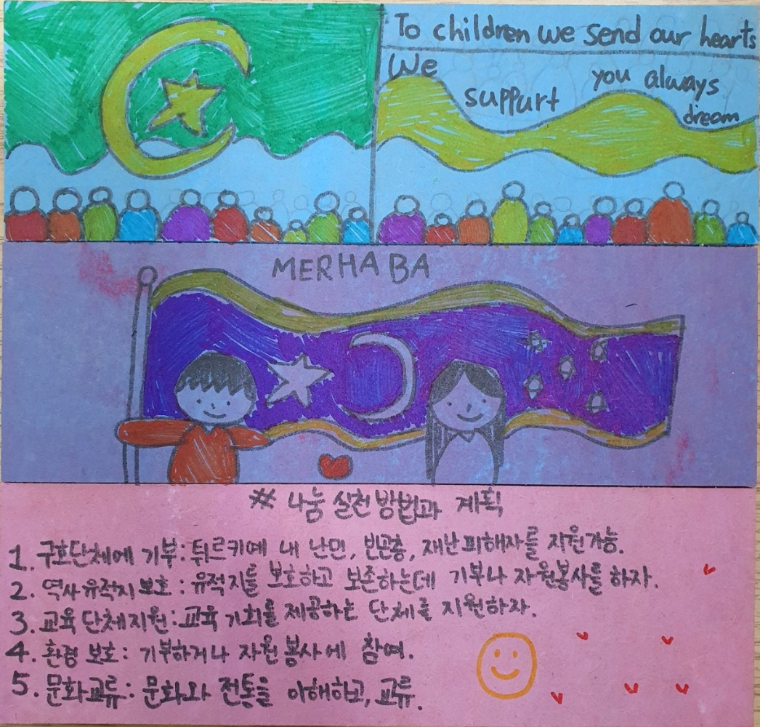 To children we send our hearts
We suppurt you always
dream
MERHABA
# 나눔 실천 방법과 계획
1. 구호단체에 기부: 튀르키예 내 난민, 빈곤층, 재난피해자를 지원가능.
2. 역사유적지 보호: 유적지를 보호하고 보존하는데 기부나 자원봉사를 하자.
3. 교육 단체지원: 교육 기회를 제공하는 단체를 지원하자.
4. 환경 보호: 기부하거나 자원 봉사에 참여.
5. 문화교류: 문화와 전통을 이해하고, 교류.